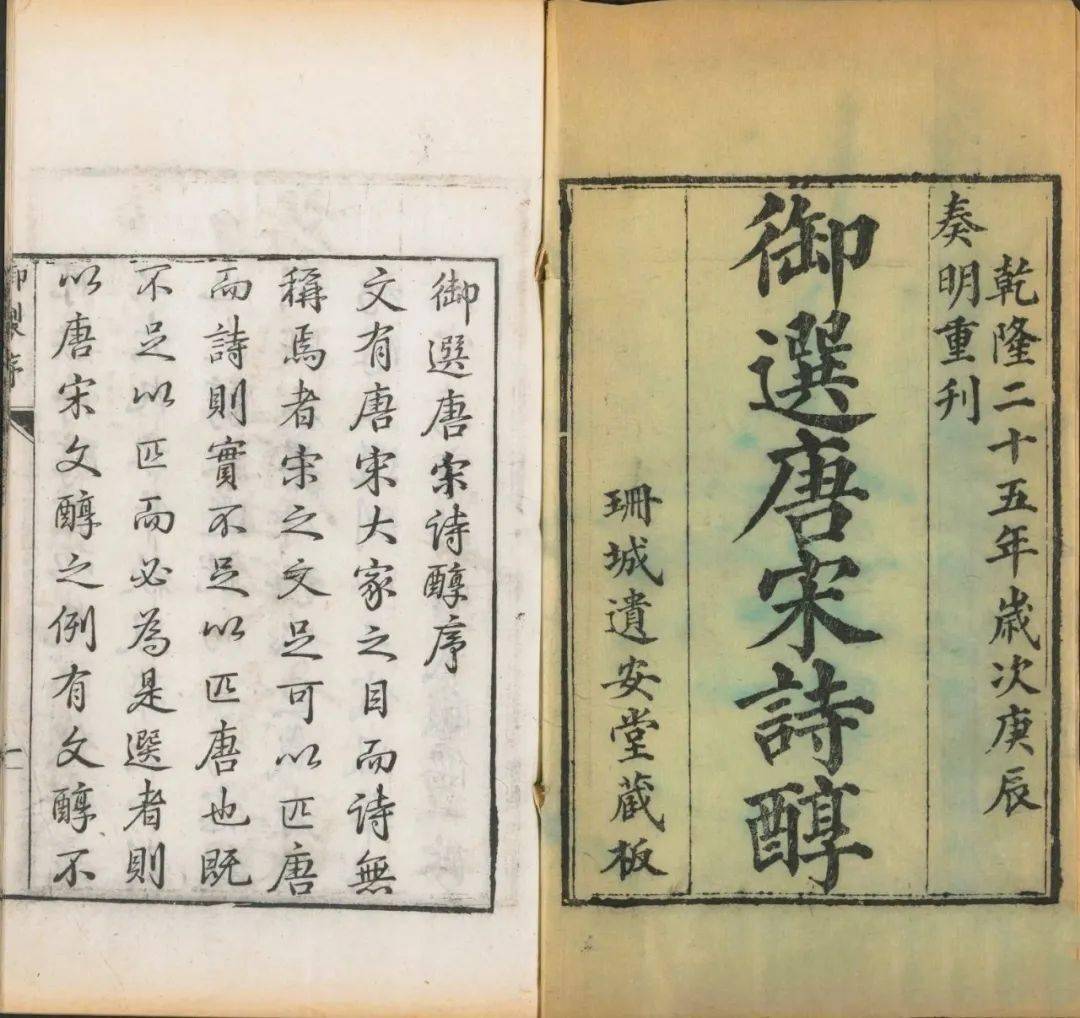 乾隆二十五年歲次庚辰
奏明重刊
御選唐宋詩醇
珊城遺安堂藏板
御選唐宋詩醇序
文有唐宋大家之目而詩無
稱焉者宋之文足可以匹唐
而詩則實不足以匹唐也既
不足以匹而必為是選者則
以唐宋文醇之例有文醇不
御製序
一